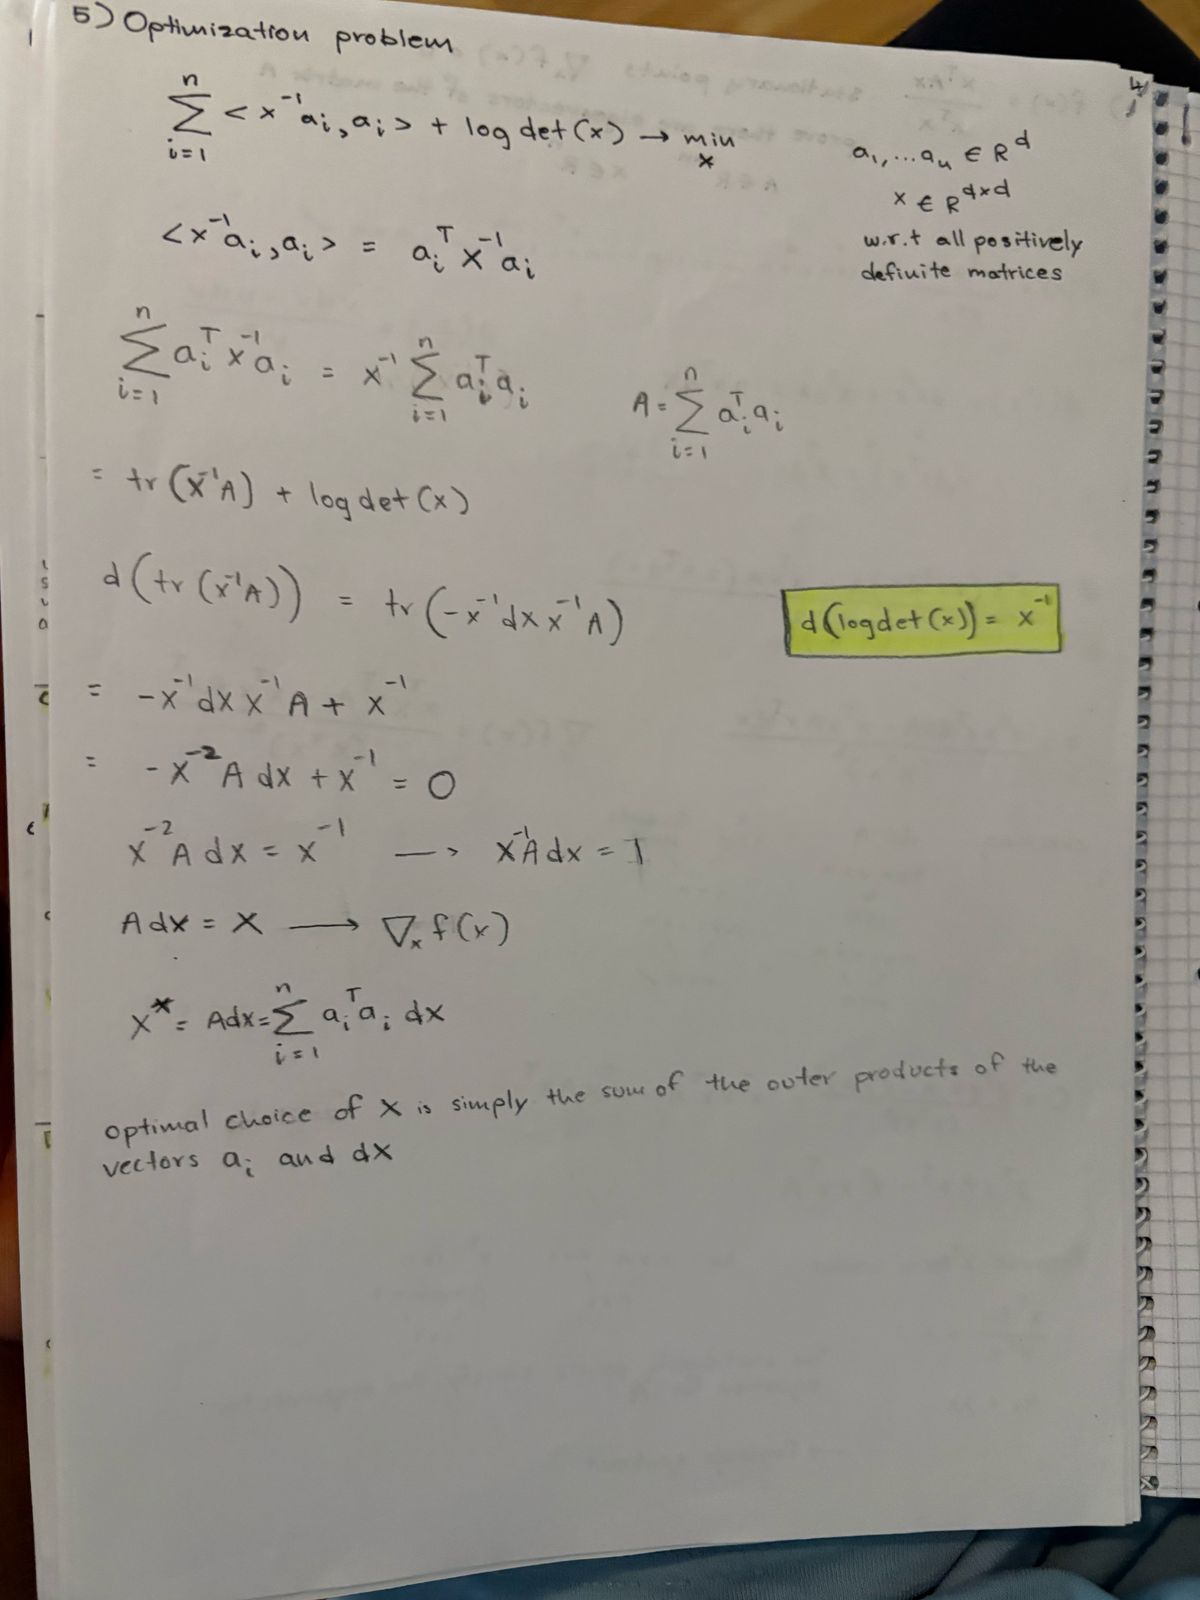 5) Optimization problem
n
∑ < x⁻¹aᵢ, aᵢ > + log det (x) → min
i=1 x
a₁, ... aₙ ∈ R^d
x ∈ R^d×d
w.r.t all positively
definite matrices
<x⁻¹aᵢ, aᵢ> = aᵢᵀ x⁻¹ aᵢ
n n
∑ aᵢᵀ x⁻¹ aᵢ = x⁻¹ ∑ aᵢᵀ aᵢ
i=1 i=1
n
A = ∑ aᵢᵀ aᵢ
i=1
= tr (x⁻¹A) + log det (x)
d (tr (x⁻¹A)) = tr (-x⁻¹ dx x⁻¹ A)
d (log det (x)) = x⁻¹
= -x⁻¹ dx x⁻¹ A + x⁻¹
= -x⁻² A dx + x⁻¹ = 0
x⁻² A dx = x⁻¹ → x⁻¹A dx = I
A dx = x → ∇ₓ f(x)
n
x* = Adx = ∑ aᵢᵀ aᵢ dx
i=1
optimal choice of x is simply the sum of the outer products of the
vectors aᵢ and dx